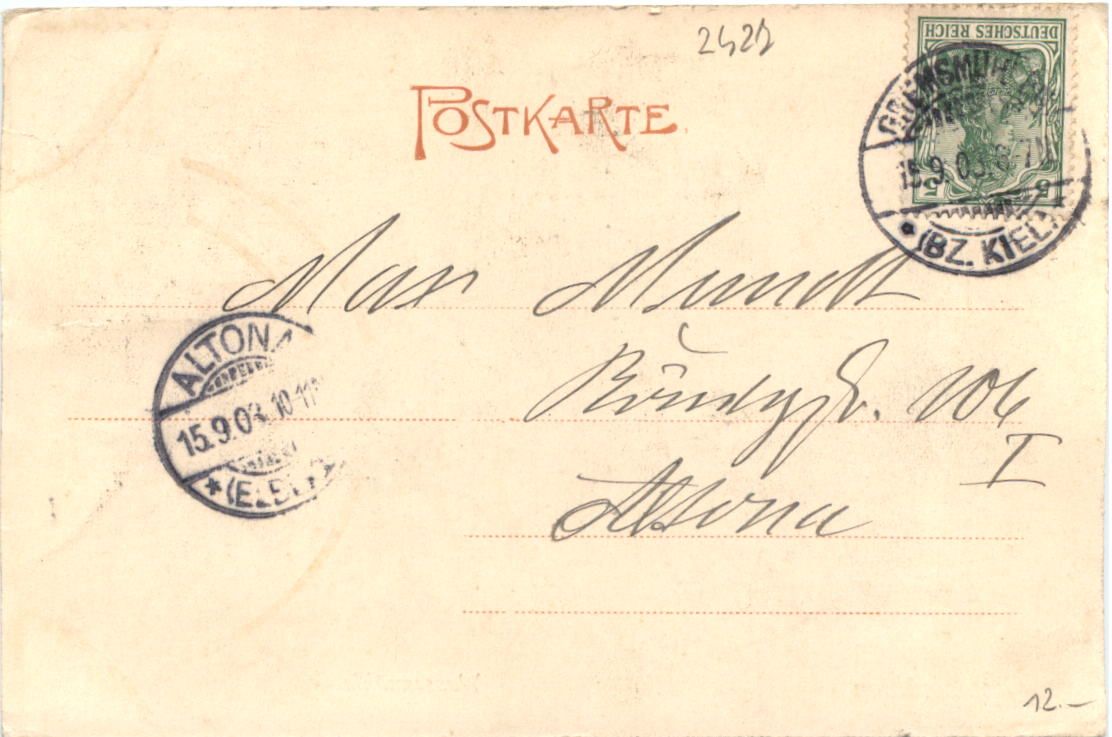 2421
POSTKARTE
DEUTSCHES REICH
5 5
GREMSMÜHLEN
15.9.03. 6-7N
* (BZ. KIEL)
Max Mundt
106
I
Altona
ALTONA
15.9.03. 10-11
* (ELBE)
12.-